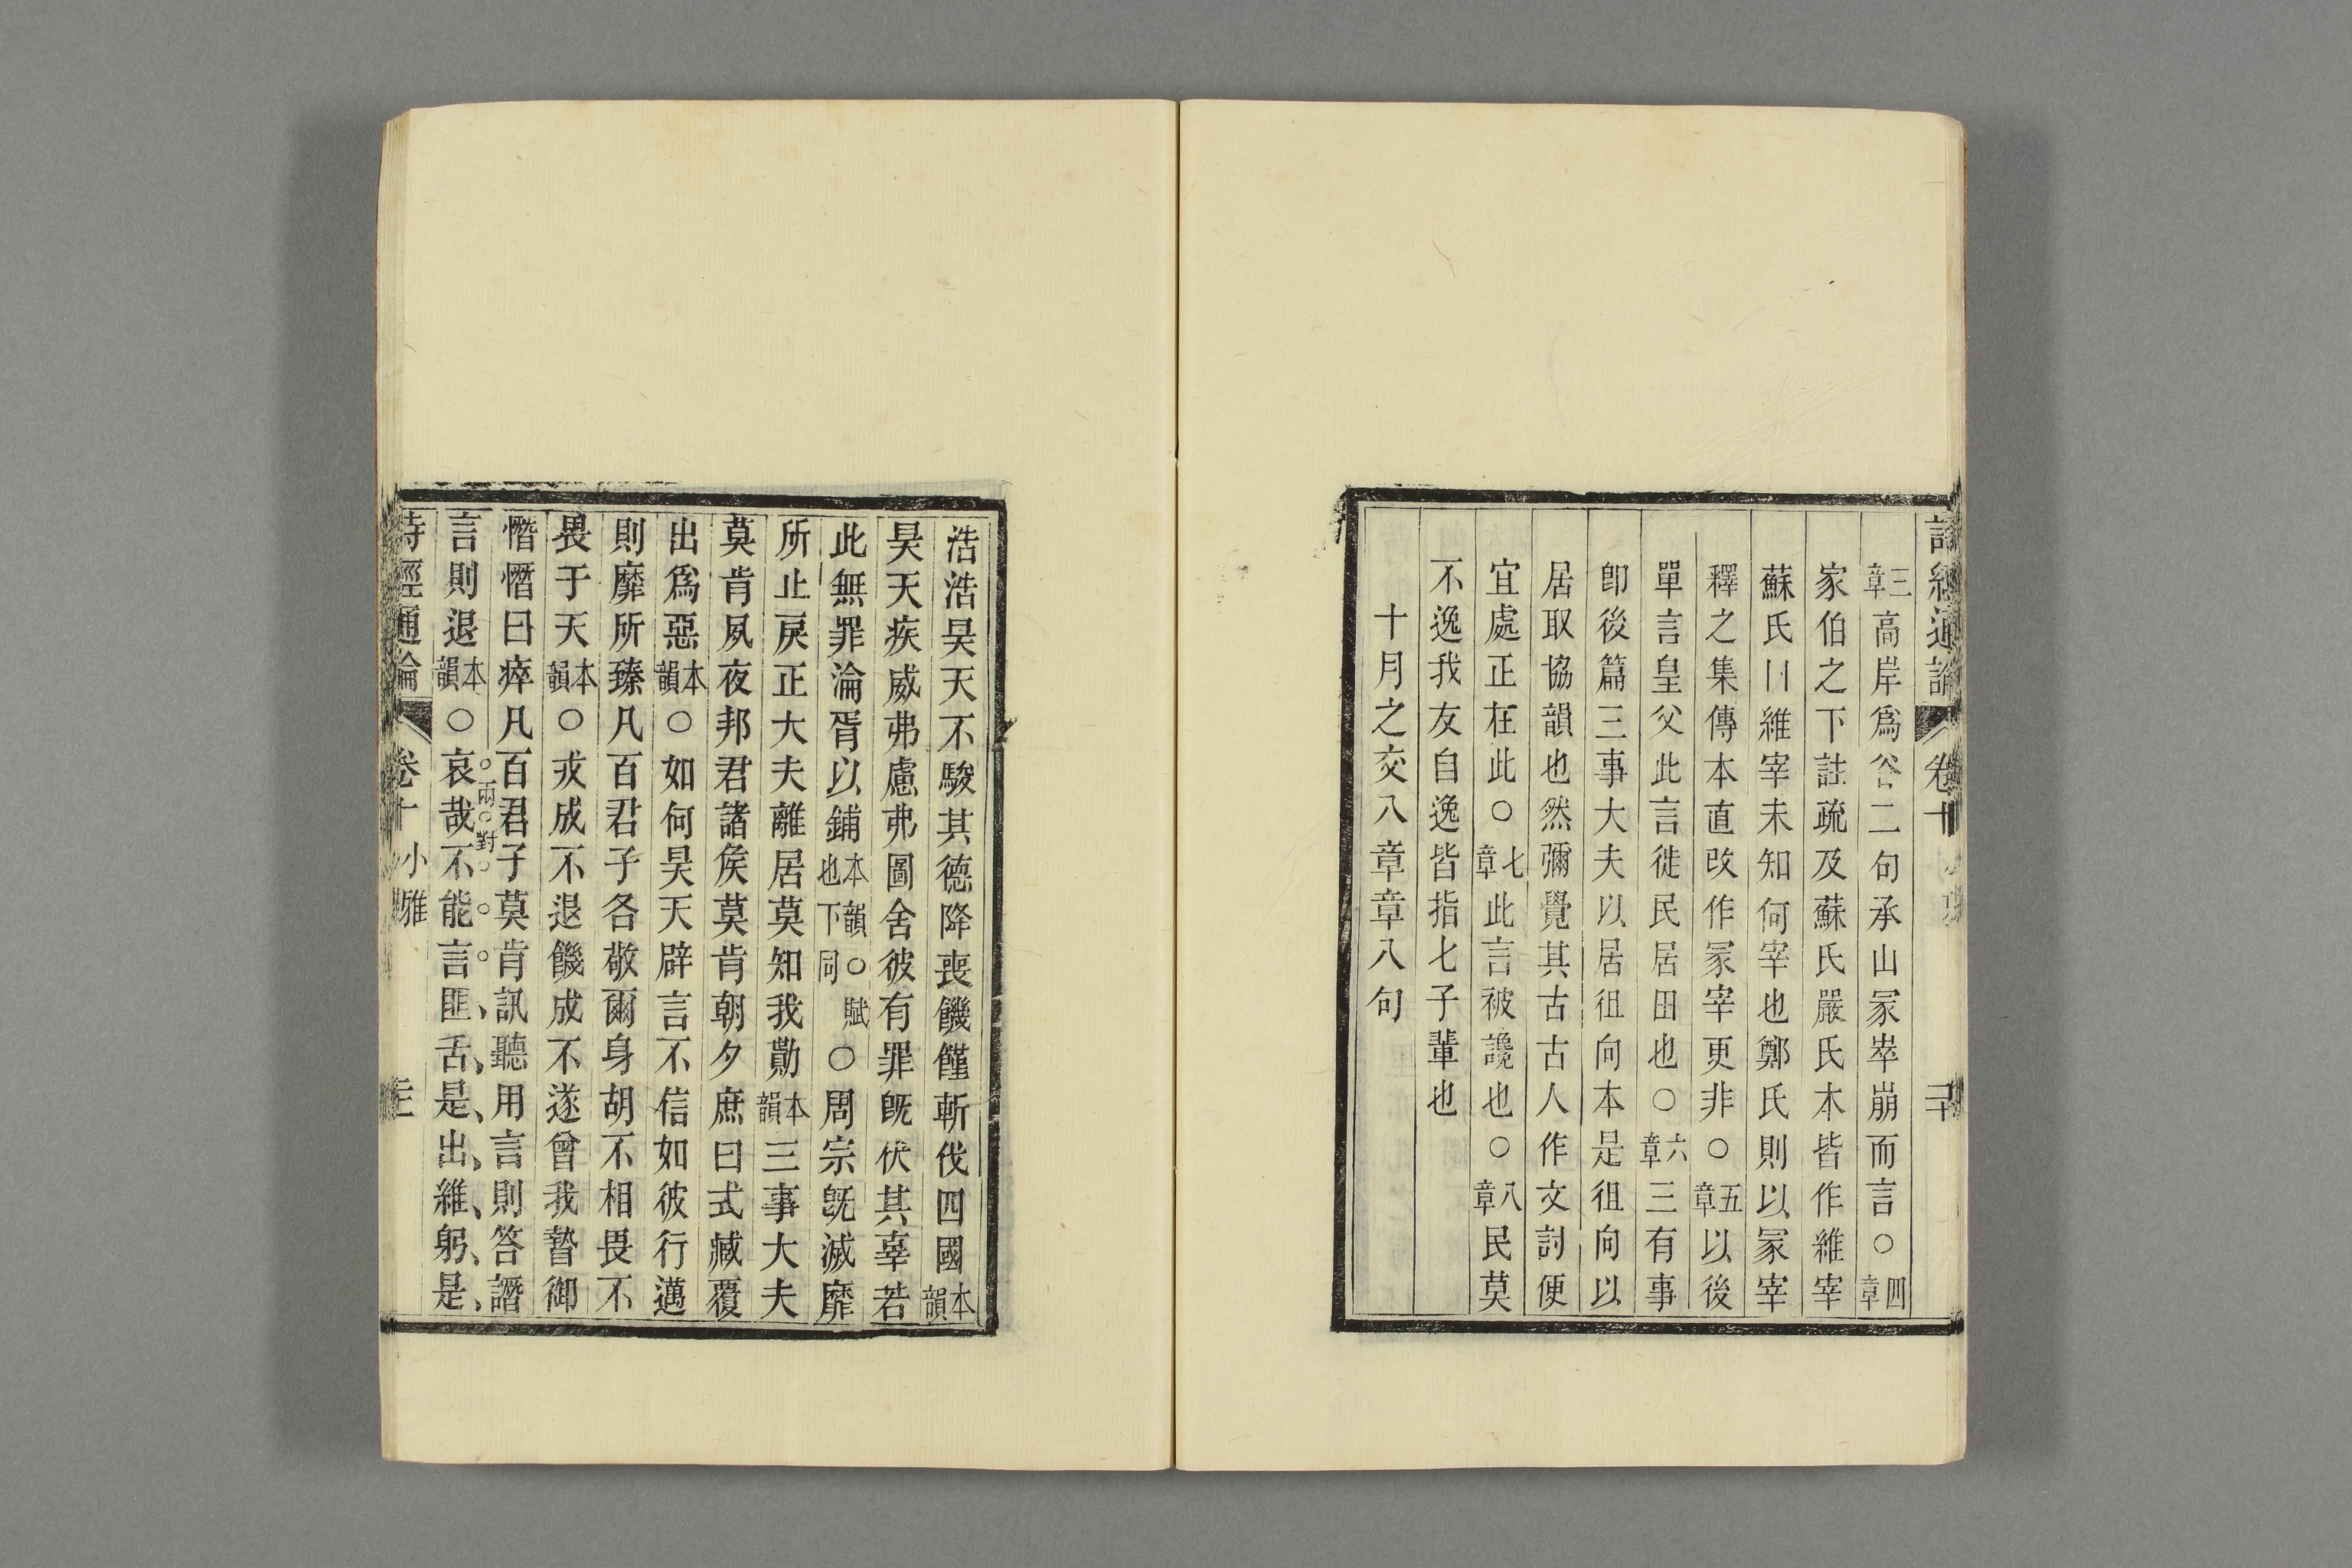 詩經通論 卷十 二十
三章高岸爲谷二句承山冢崒崩而言○四章
家伯之下註疏及蘇氏嚴氏本皆作維宰
蘇氏曰維宰未知何宰也鄭氏則以冢宰
釋之集傳本直改作冢宰更非○五章以後
單言皇父此言徙民居田也○六章三有事
卽後篇三事大夫以居徂向本是徂向以
居取協韻也然彌覺其古古人作文討便
宜處正在此○七章此言被讒也○八章民莫
不逸我友自逸皆指七子輩也
十月之交八章章八句
浩浩昊天不駿其德降喪饑饉斬伐四國本韻
昊天疾威弗慮弗圖舍彼有罪旣伏其辜若
此無罪淪胥以鋪本韻也下同○賦○周宗旣滅靡
所止戾正大夫離居莫知我勩本韻三事大夫
莫肯夙夜邦君諸侯莫肯朝夕庶曰式臧覆
出爲惡本韻○如何昊天辟言不信如彼行邁
則靡所臻凡百君子各敬爾身胡不相畏不
畏于天本韻○戎成不退饑成不遂曾我暬御
憯憯曰瘁凡百君子莫肯訊聽用言則答譖
兩對
言則退本韻○哀哉不能言匪舌是出維躬是
詩經通論 卷十 小雅